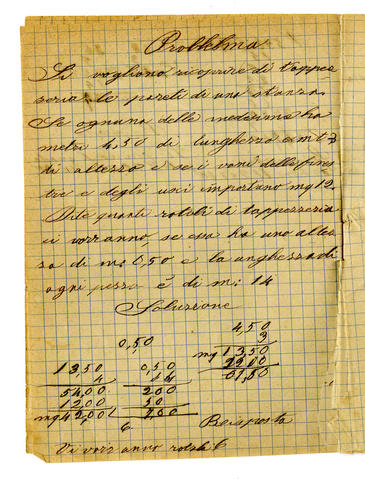 Problema
Si vogliono ricoprire di tappez
zeria le pareti di una stanza.
Se ognuna delle medesime ha
metri 4,50 di lunghezza e mt 3
di altezza e se i vani delle fines
tre e degli usci importano mq 12.
Dite quanti rotoli di tapperzeria
ci vorranno, se essa ha una altez
za di m: 0,50 e la lunghezza di
ogni pezzo è di m: 14
Soluzione
4,50
0,50 3
mq 13,50
1350 0,50
4
5400 200
1200 50
mq 42,00
6 Risposta
Vi vorranno rotoli 6